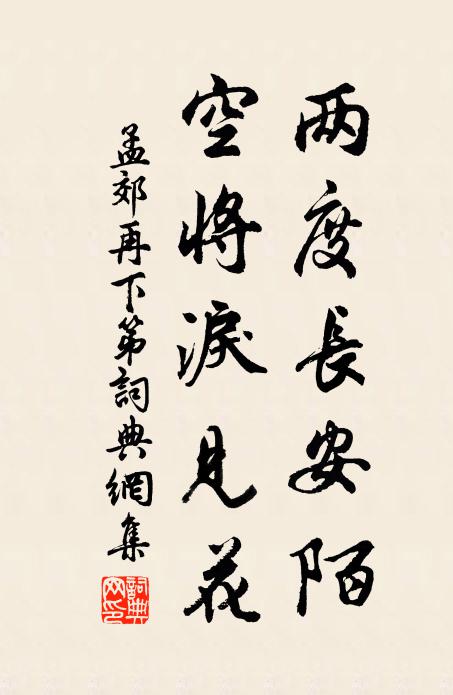 两度長安陌
空將淚見花
孟郊再下第詞典網集
詞典網印